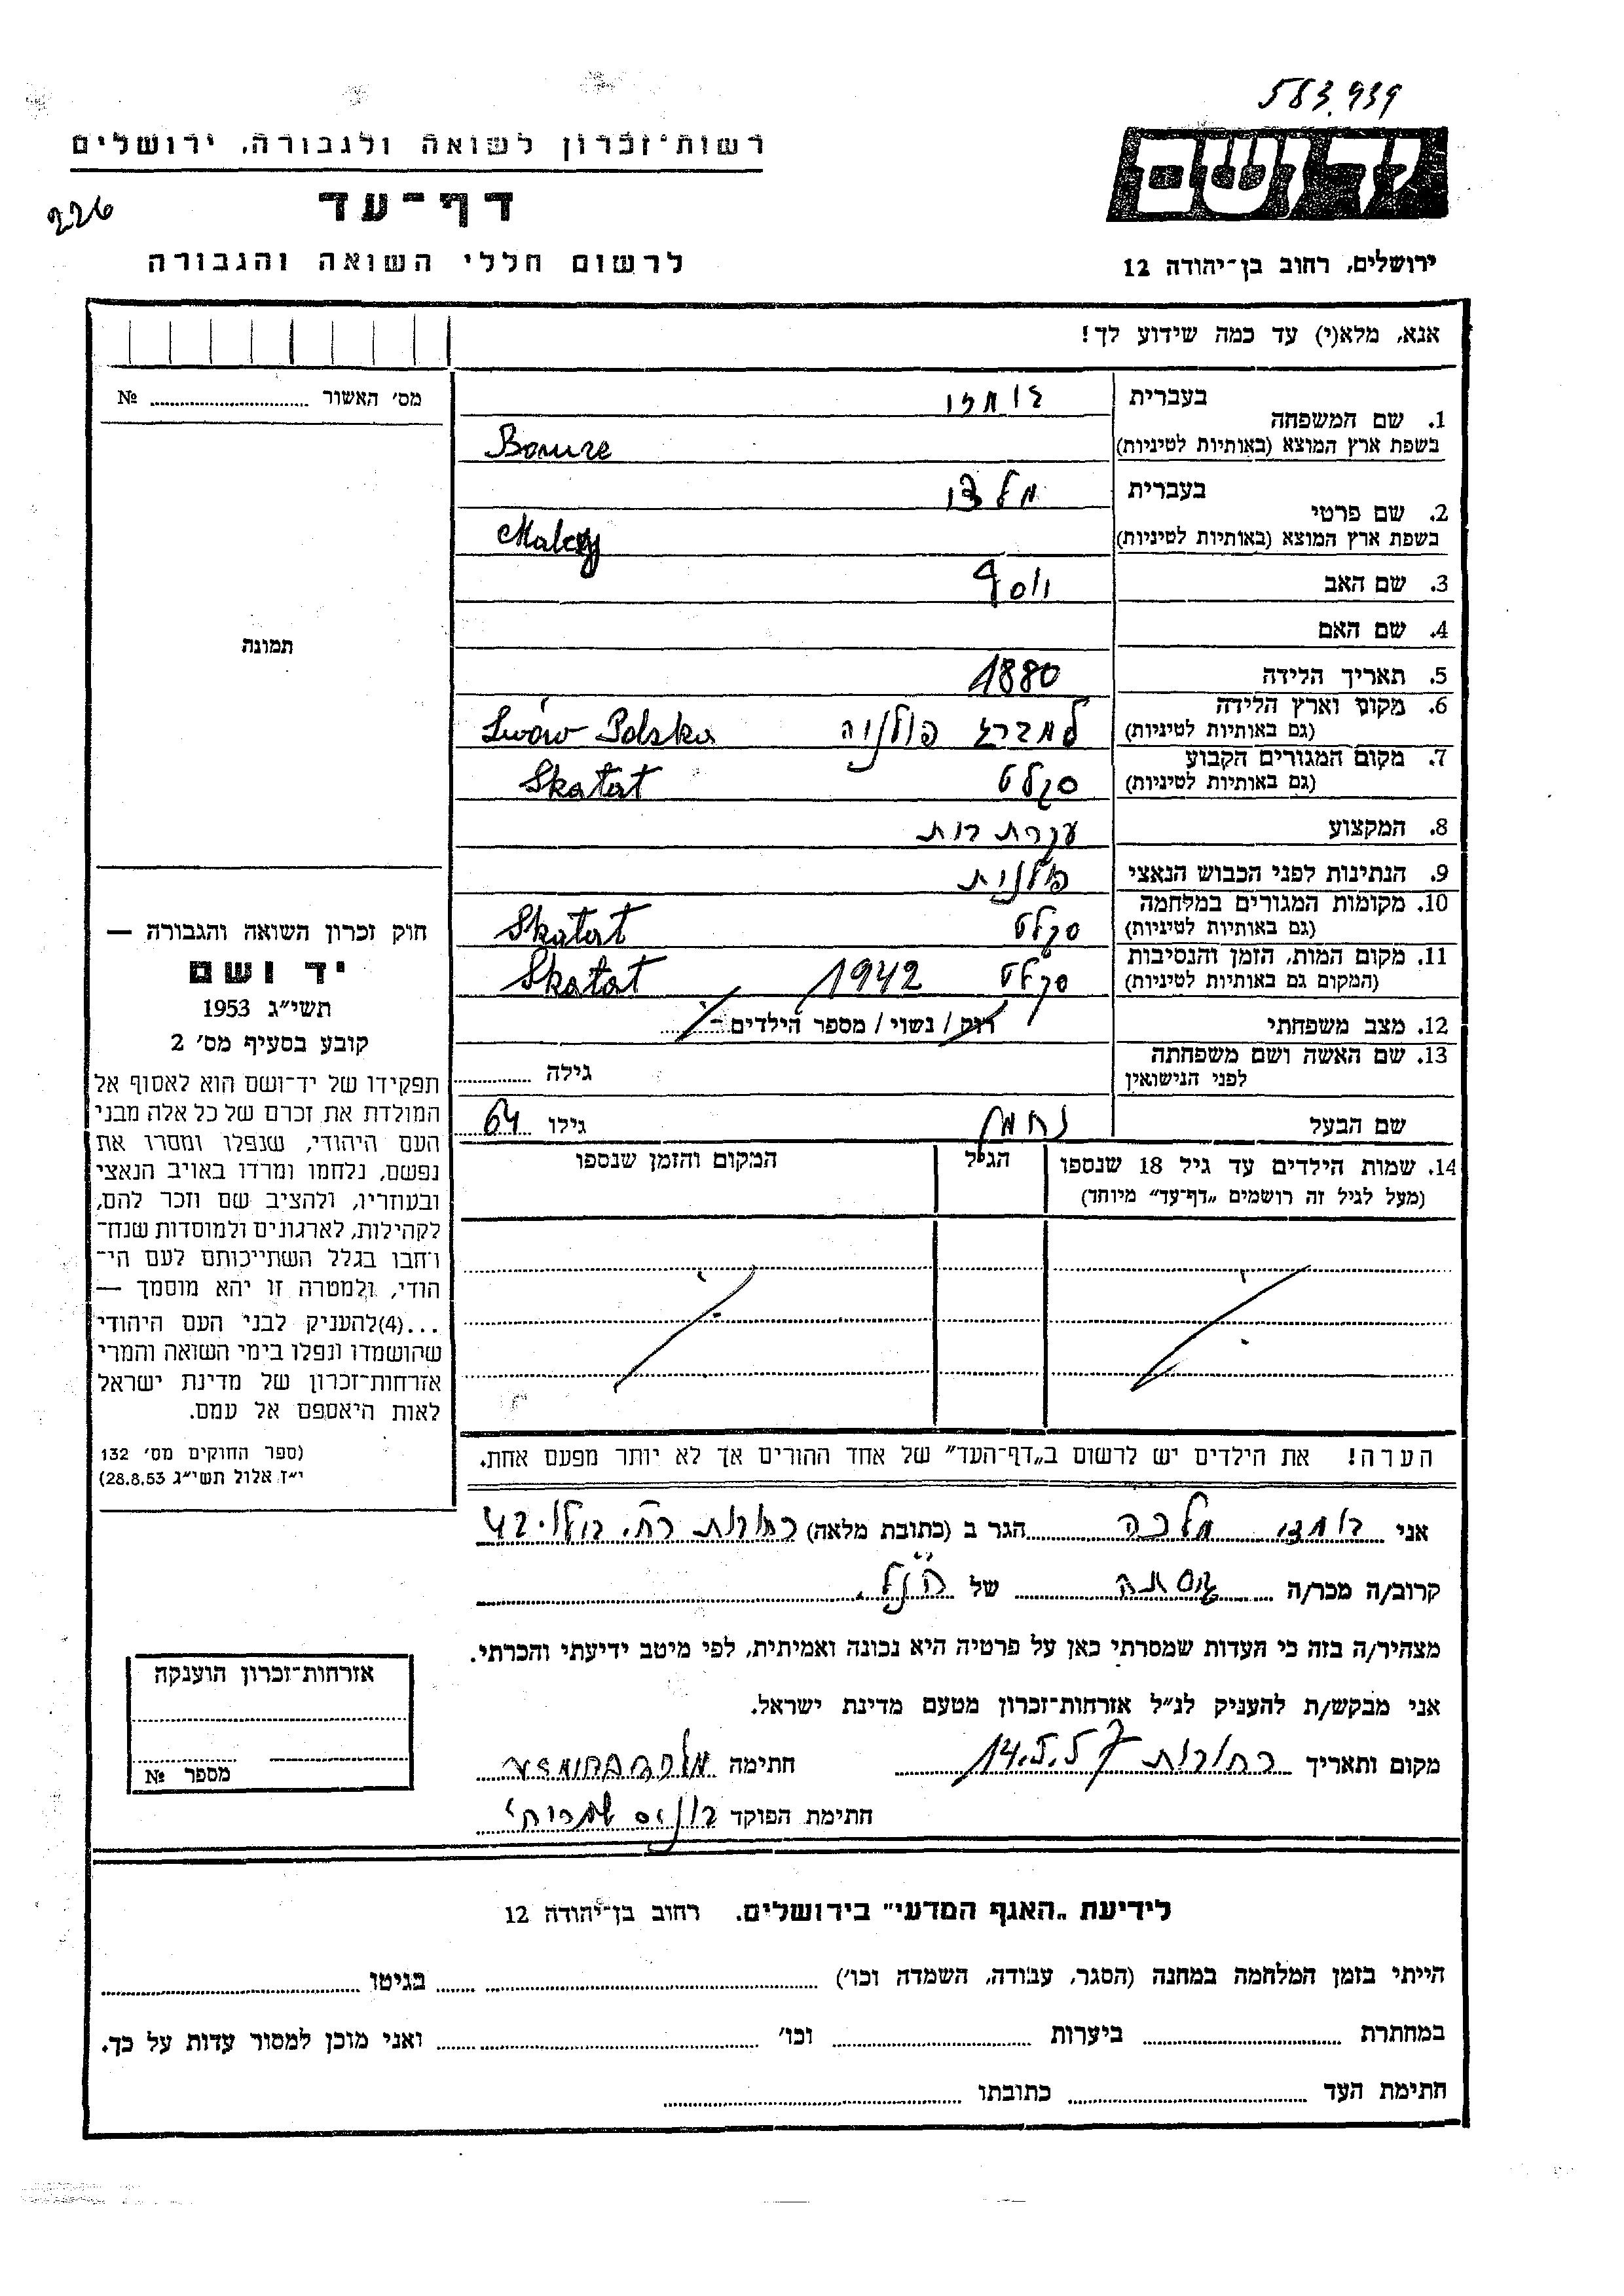 583.939
רשות־זכרון לשואה ולגבורה, ירושלים
יד ושם
דף־עד
226
לרשום חללי השואה והגבורה
ירושלים, רחוב בן־יהודה 12
אנא, מלא(י) עד כמה שידוע לך!
מס׳ האשור № 
בעברית
1. שם המשפחה
בשפת ארץ המוצא (באותיות לטיניות)
בעברית
2. שם פרטי
בשפת ארץ המוצא (באותיות לטיניות)
3. שם האב יוסף
4. שם האם
תמונה
5. תאריך הלידה 1880
6. מקום וארץ הלידה (גם באותיות לטיניות) למברג פולניה Lwów Polska
7. מקום המגורים הקבוע (גם באותיות לטיניות) סקלט Skatat
8. המקצוע עקרת בית
9. הנתינות לפני הכבוש הנאצי פולנית
10. מקומות המגורים במלחמה (גם באותיות לטיניות) סקלט Skatat
11. מקום המות, הזמן והנסיבות (המקום גם באותיות לטיניות) סקלט 1942 Skatat
12. מצב משפחתי רוק / נשוי / מספר הילדים -
13. שם האשה ושם משפחתה לפני הנישואין גילה
שם הבעל נחמן גילו 64
14. שמות הילדים עד גיל 18 שנספו הגיל המקום והזמן שנספו
(מעל לגיל זה רושמים „דף־עד״ מיוחד)
חוק זכרון השואה והגבורה —
יד ושם
תשי״ג 1953
קובע בסעיף מס׳ 2
תפקידו של יד־ושם הוא לאסוף אל
המולדת את זכרם של כל אלה מבני
העם היהודי, שנפלו ומסרו את
נפשם, נלחמו ומרדו באויב הנאצי
ובעוזריו, ולהציב שם וזכר להם,
לקהילות, לארגונים ולמוסדות שנח־
רבו בגלל השתייכותם לעם הי־
הודי, ולמטרה זו יהא מוסמך —
...(4)להעניק לבני העם היהודי
שהושמדו ונפלו בימי השואה והמרי
אזרחות־זכרון של מדינת ישראל
לאות היאספם אל עמם.
(ספר החוקים מס׳ 132
י״ז אלול תשי״ג 28.8.53)
הערה! את הילדים יש לרשום ב„דף־העד״ של אחד ההורים אך לא יותר מפעם אחת.
אני מלכה הגר ב (כתובת מלאה) רחובות רח׳ 42
קרוב/ה מכר/ה של הנ״ל
מצהיר/ה בזה כי העדות שמסרתי כאן על פרטיה היא נכונה ואמיתית, לפי מיטב ידיעתי והכרתי.
אני מבקש/ת להעניק לנ״ל אזרחות־זכרון מטעם מדינת ישראל.
מקום ותאריך רחובות 14.5.57 חתימה
חתימת הפוקד
אזרחות־זכרון הוענקה
מספר №
לידיעת „האגף המדעי״ בירושלים. רחוב בן־יהודה 12
הייתי בזמן המלחמה במחנה (הסגר, עבודה, השמדה וכו׳) בגיטו
במחתרת ביערות וכו׳ ואני מוכן למסור עדות על כך.
חתימת העד כתובתו